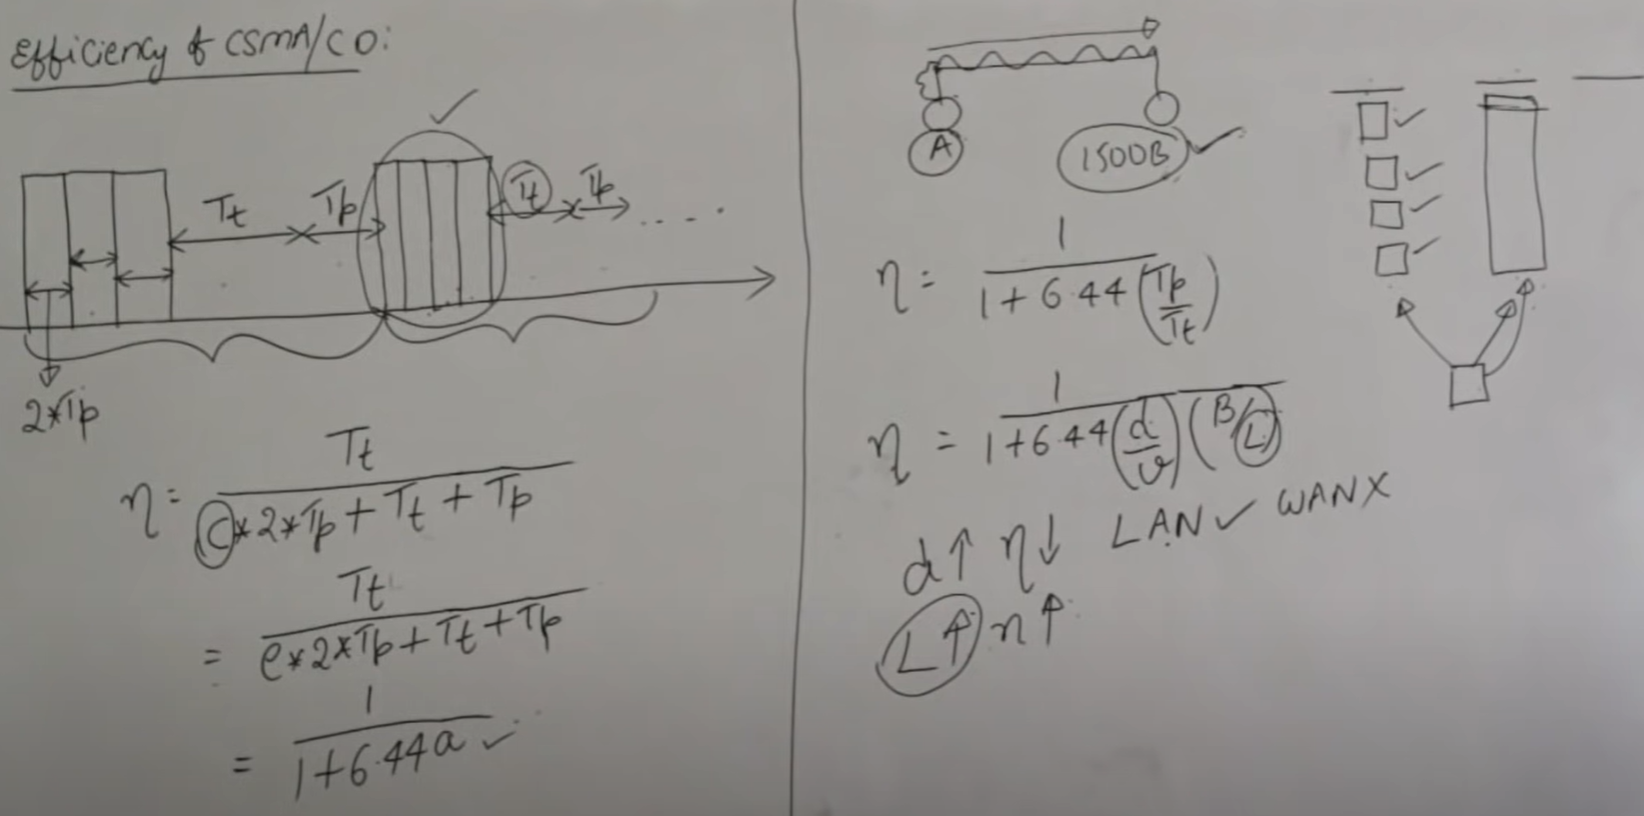 Efficiency of CSMA/CD:
Tt Tp Tt Tp ....
2*Tp
η = Tt / (C*2*Tp + Tt + Tp)
= Tt / (e*2*Tp + Tt + Tp)
= 1 / (1+6.44a) ✓
A 1500B ✓
η = 1 / (1+6.44(Tp/Tt))
η = 1 / (1+6.44(d/v)(B/L))
d↑ η↓ LAN✓ WANX
L↑ η↑